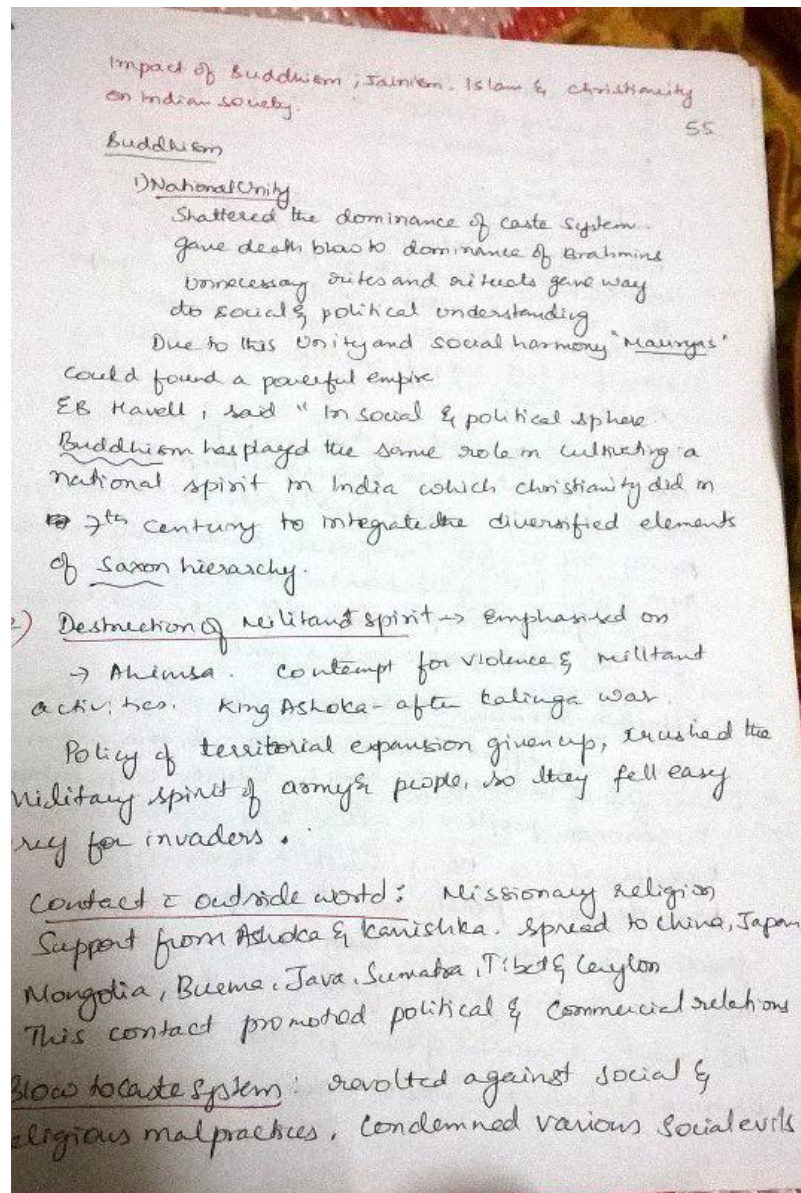 Impact of Buddhism, Jainism, Islam & Christianity
on Indian society.
55
Buddhism
1) National Unity
Shattered the dominance of caste system
gave death blow to dominance of Brahmins
Unnecessary rites and rituals gave way
to social & political understanding
Due to this Unity and social harmony "Mauryas"
could found a powerful empire
EB Havell, said " In social & political sphere
Buddhism has played the same role in cultivating a
national spirit in India which christianity did in
7th century to integrate the diversified elements
of Saxon hierarchy.
2) Destruction of Militant spirit → Emphasised on
→ Ahimsa. Contempt for violence & militant
activities. King Ashoka - after Kalinga war.
Policy of territorial expansion given up, crushed the
Military spirit of army & people, so they fell easy
rey for invaders.
Contact c outside world: Missionary religion
Support from Ashoka & Kanishka. Spread to China, Japan
Mongolia, Burma, Java, Sumatra, Tibet & Ceylon
This contact promoted political & Commercial relations
Blow to caste system: revolted against social &
eligious malpractices, Condemned various Social evils